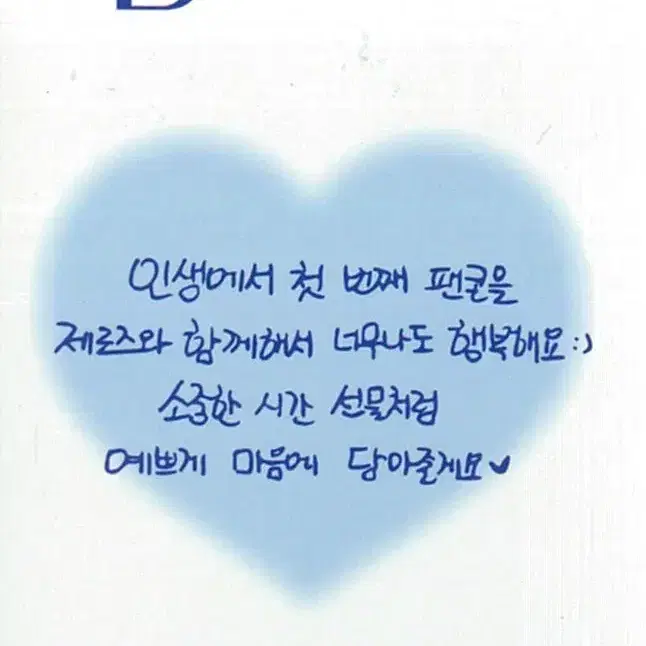 인생에서 첫 번째 팬콘을
제로즈와 함께해서 너무나도 행복해요:)
소중한 시간 선물처럼
예쁘게 마음에 담아줄게요♥